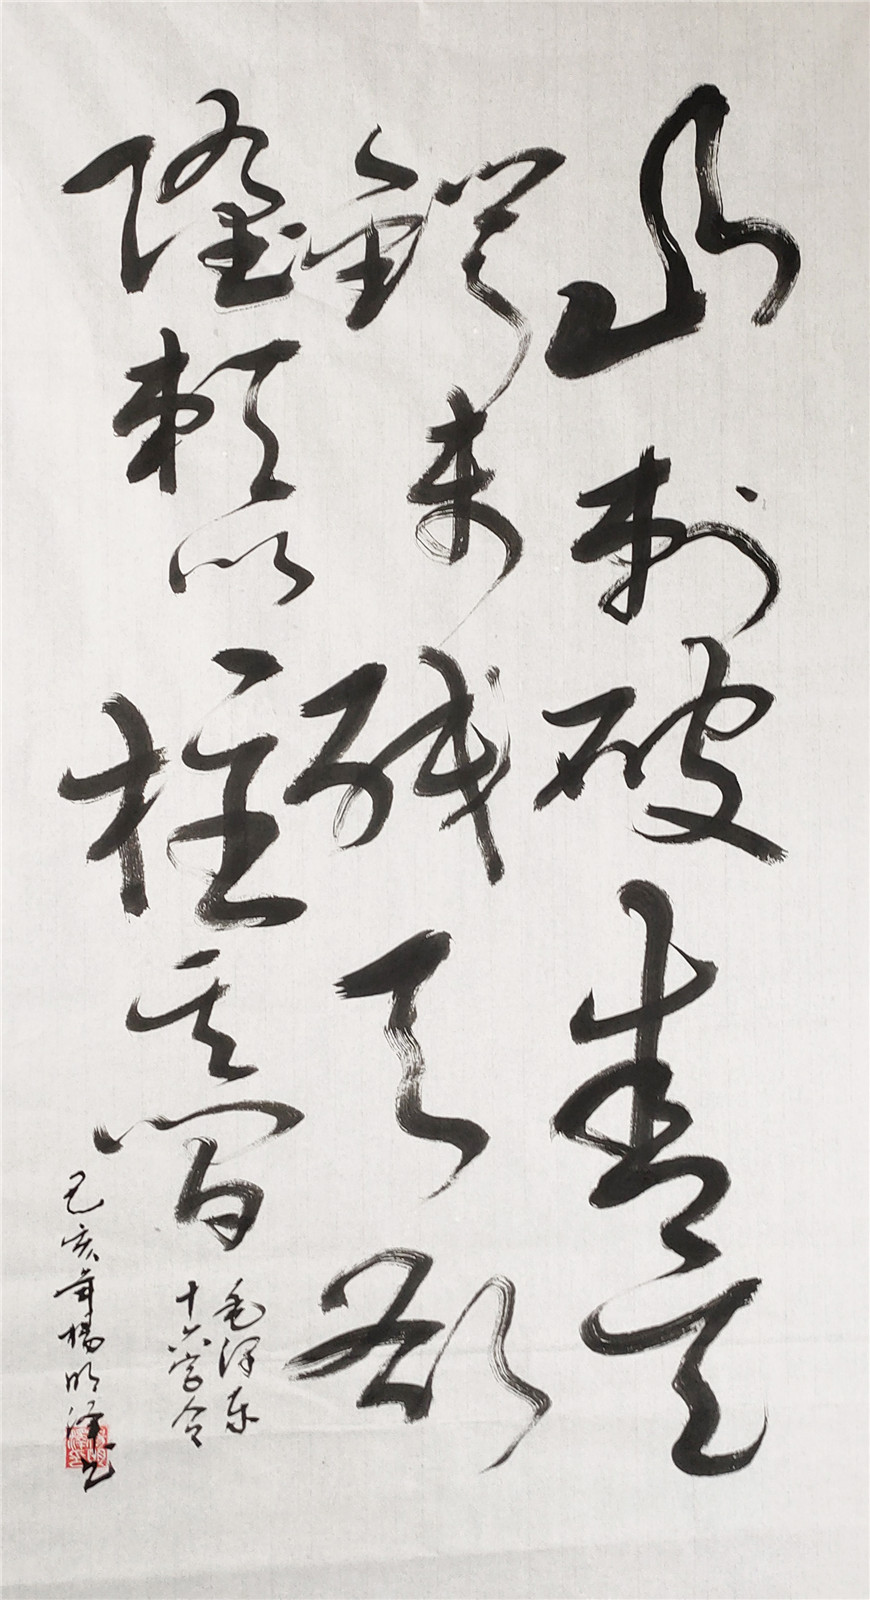 山刺破青天
锷未残天欲
堕赖以柱其间
毛泽东
十六字令
己亥年杨明泽书